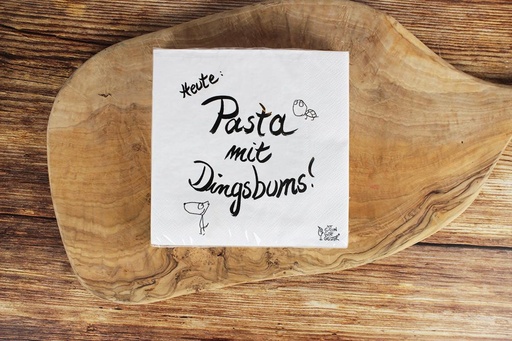 Heute:
Pasta
mit
Dingsbums!